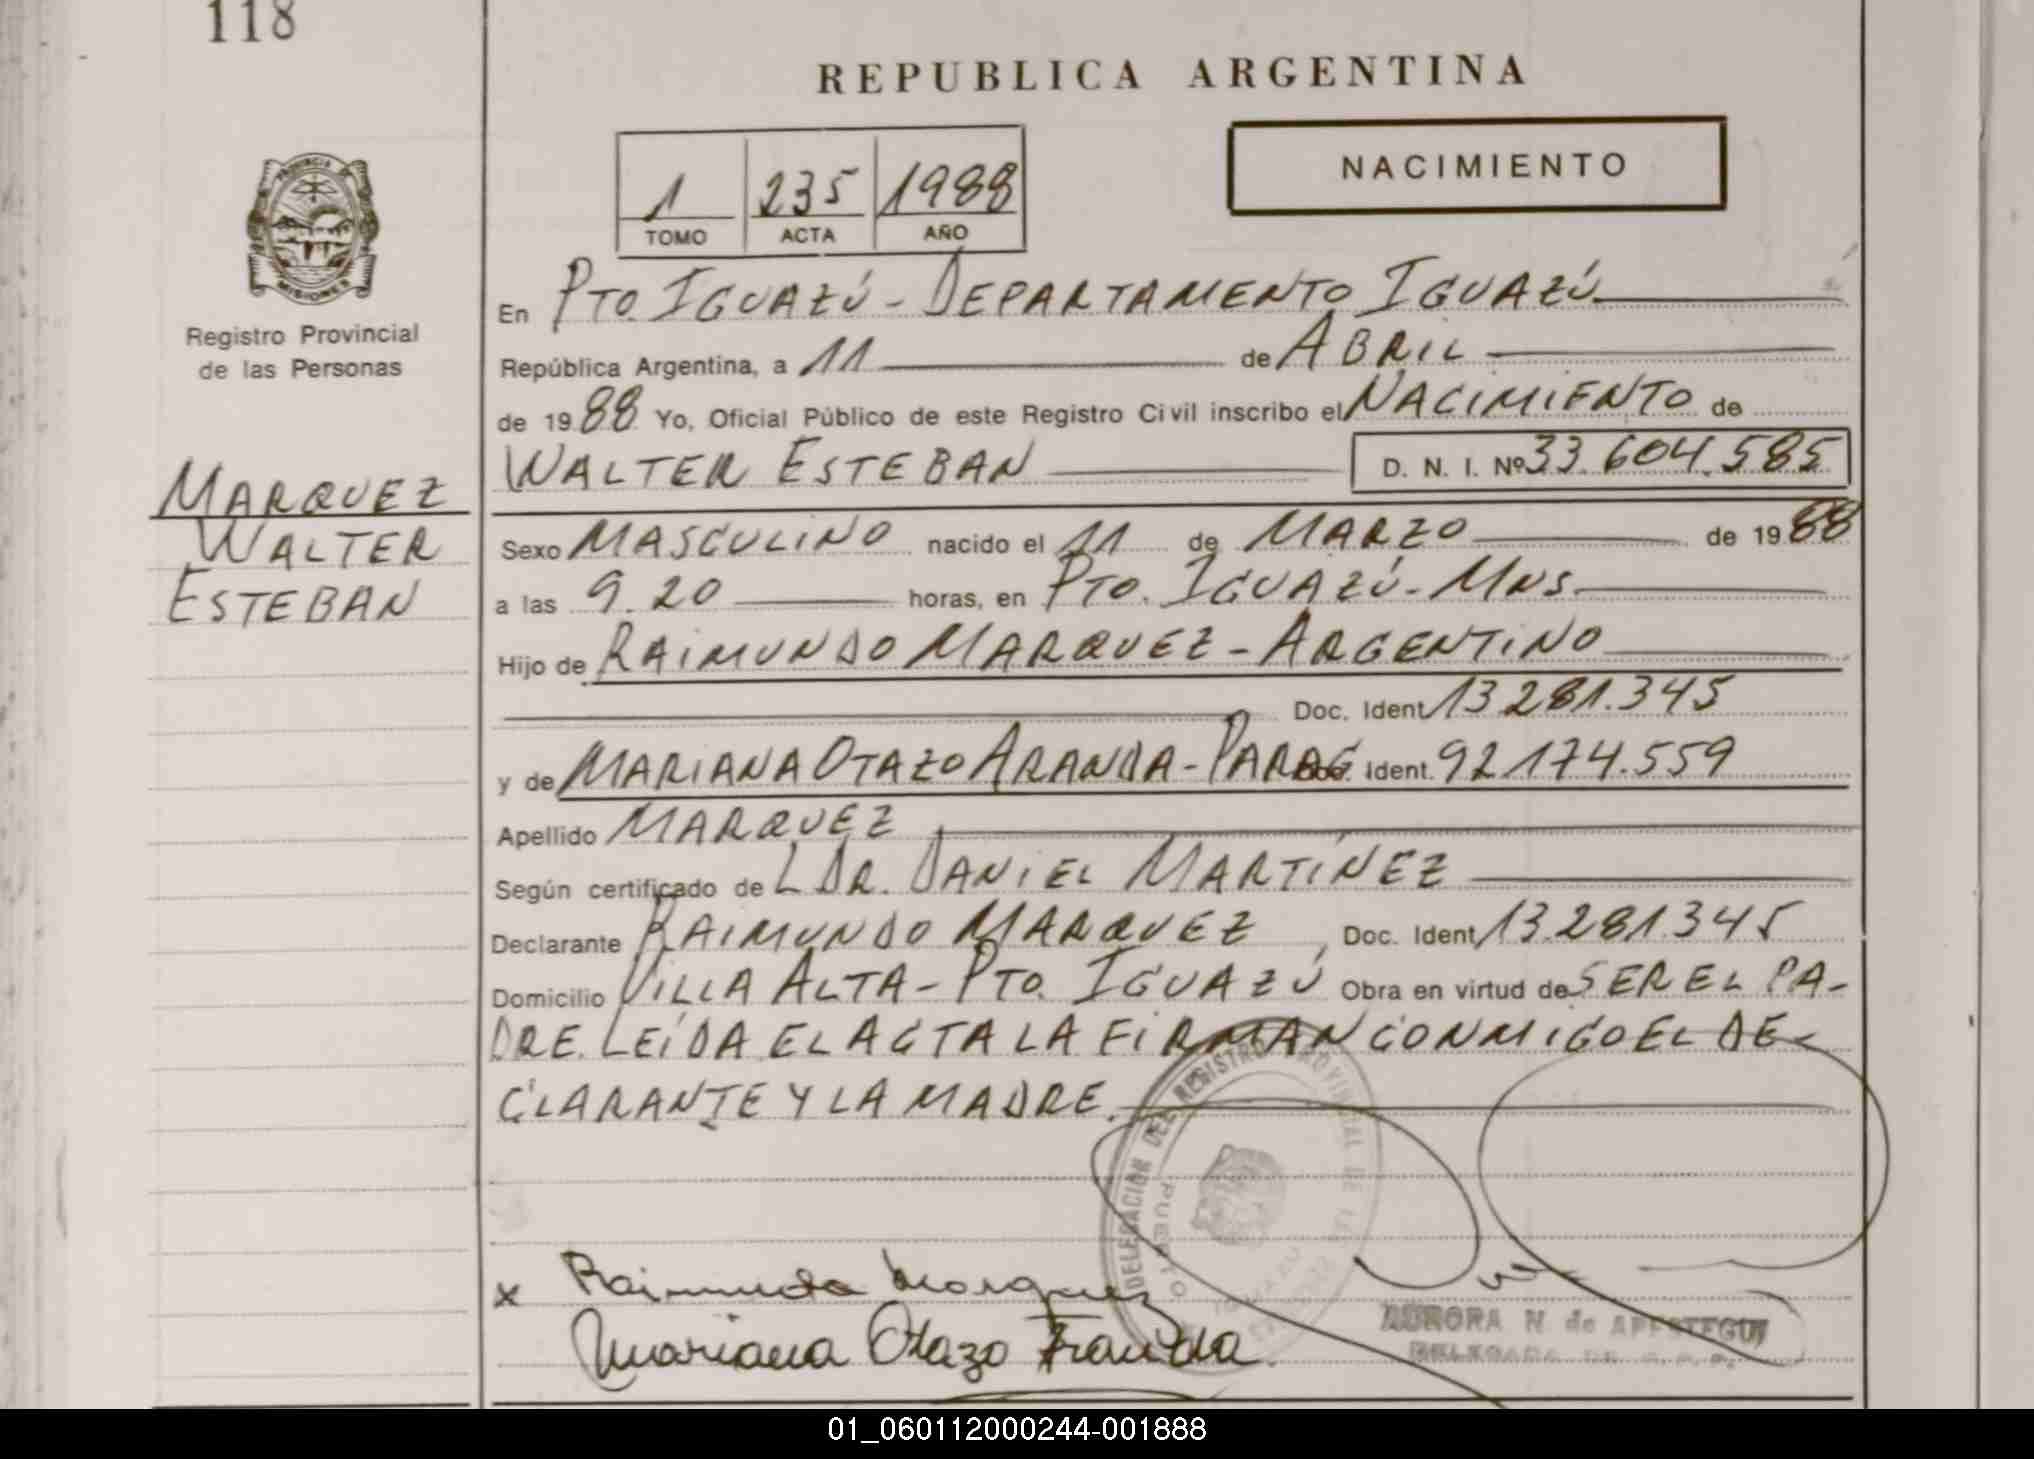 118
REPUBLICA ARGENTINA
PROVINCIA
MISIONES
Registro Provincial
de las Personas
1 235 1988
TOMO ACTA AÑO
NACIMIENTO
En PTO. IGUAZÚ - DEPARTAMENTO IGUAZÚ
República Argentina, a 11 de ABRIL
de 1988 Yo, Oficial Público de este Registro Civil inscribo el NACIMIENTO de
WALTER ESTEBAN D. N. I. Nº 33.604.585
MARQUEZ
WALTER
ESTEBAN
Sexo MASCULINO nacido el 11 de MARZO de 1988
a las 9.20 horas, en PTO. IGUAZÚ - MNS.
Hijo de RAIMUNDO MARQUEZ - ARGENTINO
Doc. Ident. 13.281.345
y de MARIANA OTAZO ARANDA - PARAG. Ident. 92.174.559
Apellido MARQUEZ
Según certificado de L DR. DANIEL MARTÍNEZ
Declarante RAIMUNDO MARQUEZ, Doc. Ident. 13.281.345
Domicilio VILLA ALTA - PTO. IGUAZÚ Obra en virtud de SER EL PA-
DRE. LEÍDA EL ACTA LA FIRMAN CONMIGO EL DE-
CLARANTE Y LA MADRE.
DELEGACION DEL REGISTRO PROVINCIAL DE
PUERTO
x Raimundo Marquez
Mariana Otazo Aranda.
AURORA N. de
DELEGADA
01_060112000244-001888